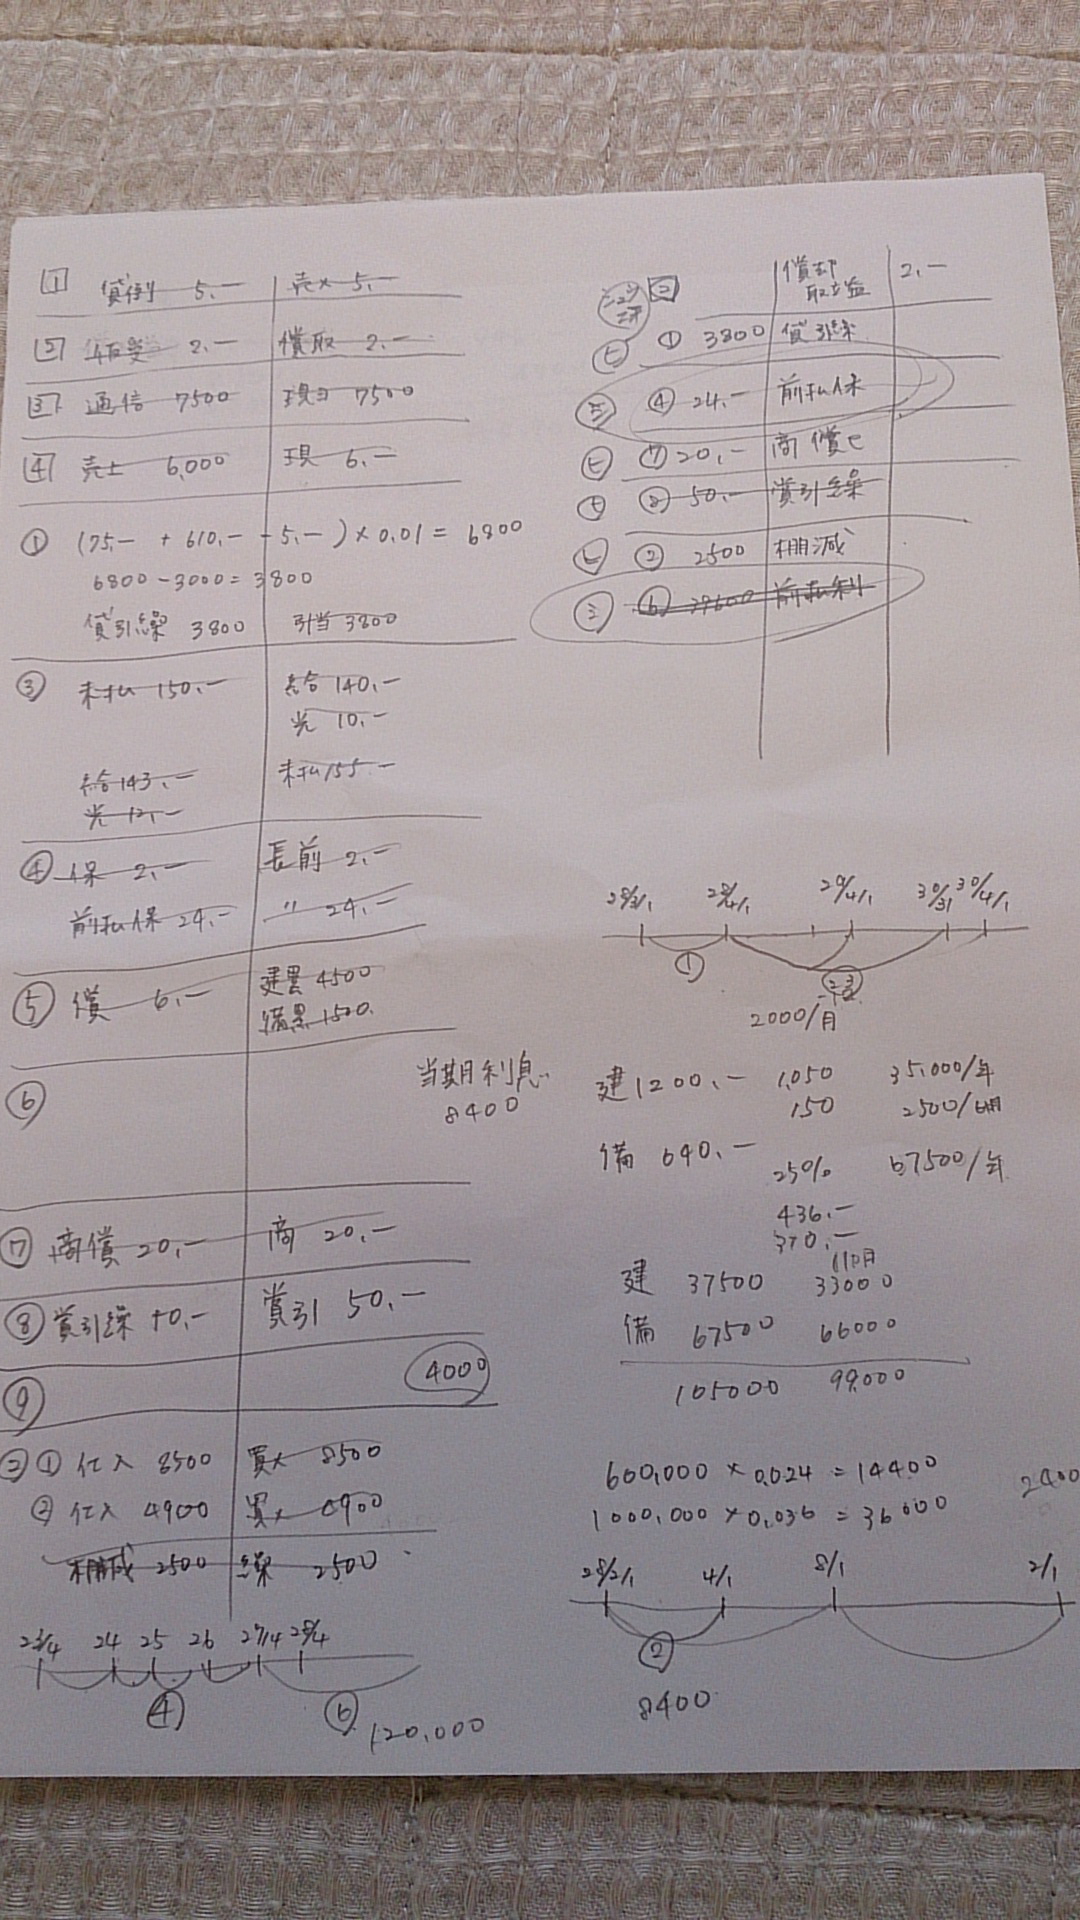 1 貸倒 5.— 売× 5.—
2 仮受 2.— 償取 2.—
3 通信 7500 現日 7500
4 売上 6,000 現 6.—
① (75.— + 610.— - 5.—) × 0.01 = 6800
6800 - 3000 = 3800
貸引繰 3800 引当 3800
③ 未払 150.— 給 140.—
光 10.—
給 143.— 未払 155.—
光 12.—
④ 保 2.— 長前 2.—
前払保 24.— 〃 24.—
⑤ 償 6.— 建累 4500
備累 1500
⑥ 当期利息
8400
⑦ 商償 20.— 商 20.—
⑧ 賞引繰 50.— 賞引 50.—
⑨ 4000
① 仕入 8500 買× 8500
② 仕入 4900 買× 4900
棚減 2500 繰 2500
23/4 24 25 26 27/4 28/4
④ ⑥
120,000
償却
取立益 2.—
① 3800 貸引繰
④ 24.— 前払保
⑦ 20.— 商償
⑧ 50.— 賞引繰
② 2500 棚減
⑥ 39600 前払利
28/3/1 28/4/1 29/4/1 30/3/1 30/4/1
①
2000/月
建 1200.— 1,050 35,000/年
150 2500/
備 640.—
25% 67500/年
436.—
370.—
11ヶ月
建 37500 33000
備 67500 66000
105000 99,000
600,000 × 0.024 = 14400
2400
1000,000 × 0.036 = 36000
28/2/1 4/1 8/1 2/1
②
8400